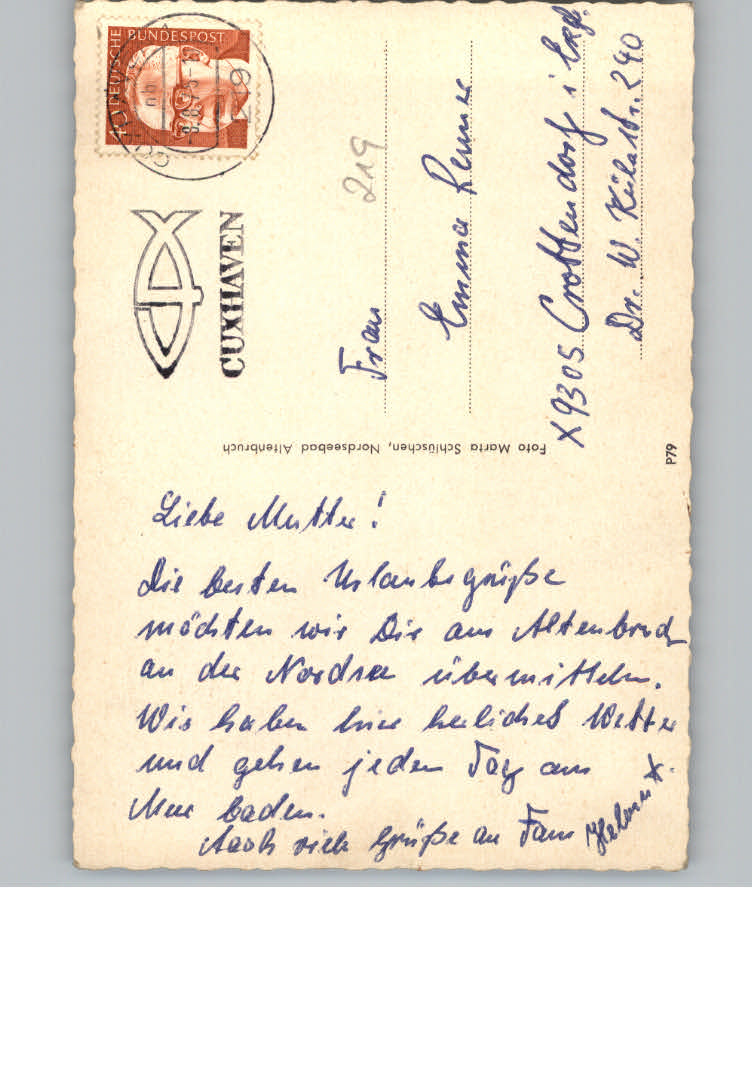 DEUTSCHE BUNDESPOST
40
CUXHAVEN
219
Frau
Emma Renner
X9305 Crottendorf i Erzg.
Dr. W. Külzstr. 240
Foto Marta Schlüschen, Nordseebad Altenbruch
P79
Liebe Mutter!
Die besten Urlaubsgrüße
möchten wir Dir aus Altenbruch
an der Nordsee übermitteln.
Wir haben hier herliches Wetter
und gehen jeden Tag am
Meer baden.
Auch viele Grüße an Fam